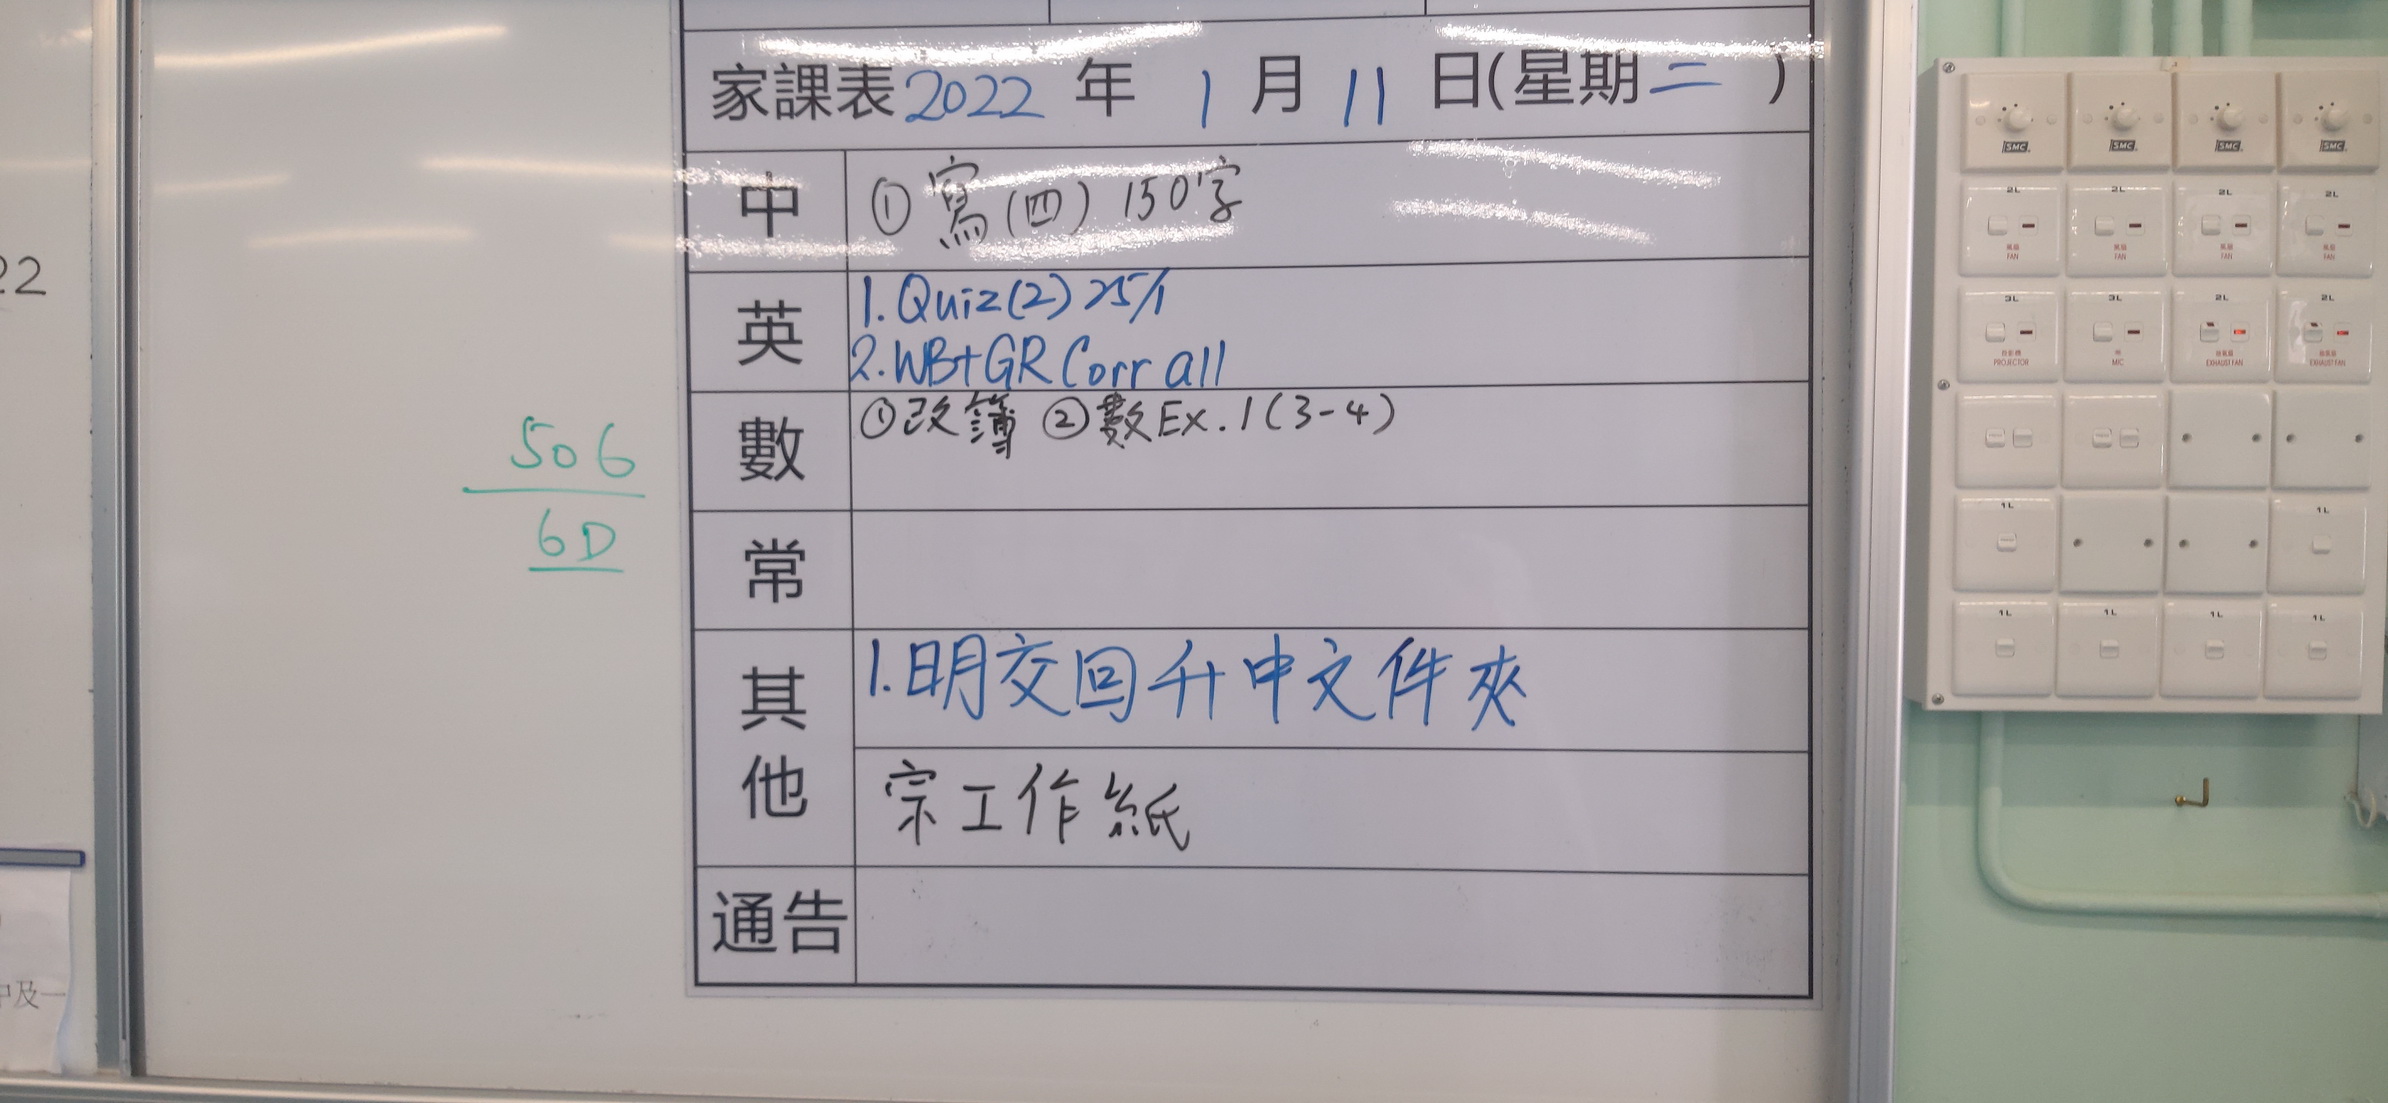 22
中及一
506
6D
家課表 2022 年 1 月 11 日(星期二)
中
① 寫(四) 150字
英
1. Quiz(2) 25/1
2. WB+GR Corr all
數
①改簿 ②數Ex.1(3-4)
常
其他
1.明交回升中文件夾
宗工作紙
通告
SMC SMC SMC SMC
2L 2L 2L 2L
風扇 風扇 風扇 風扇
FAN FAN FAN FAN
3L 3L 2L 2L
投影機 抽氣扇 抽氣扇
PROJECTOR MIC EXHAUST FAN EXHAUST FAN
1L 1L
1L 1L 1L 1L